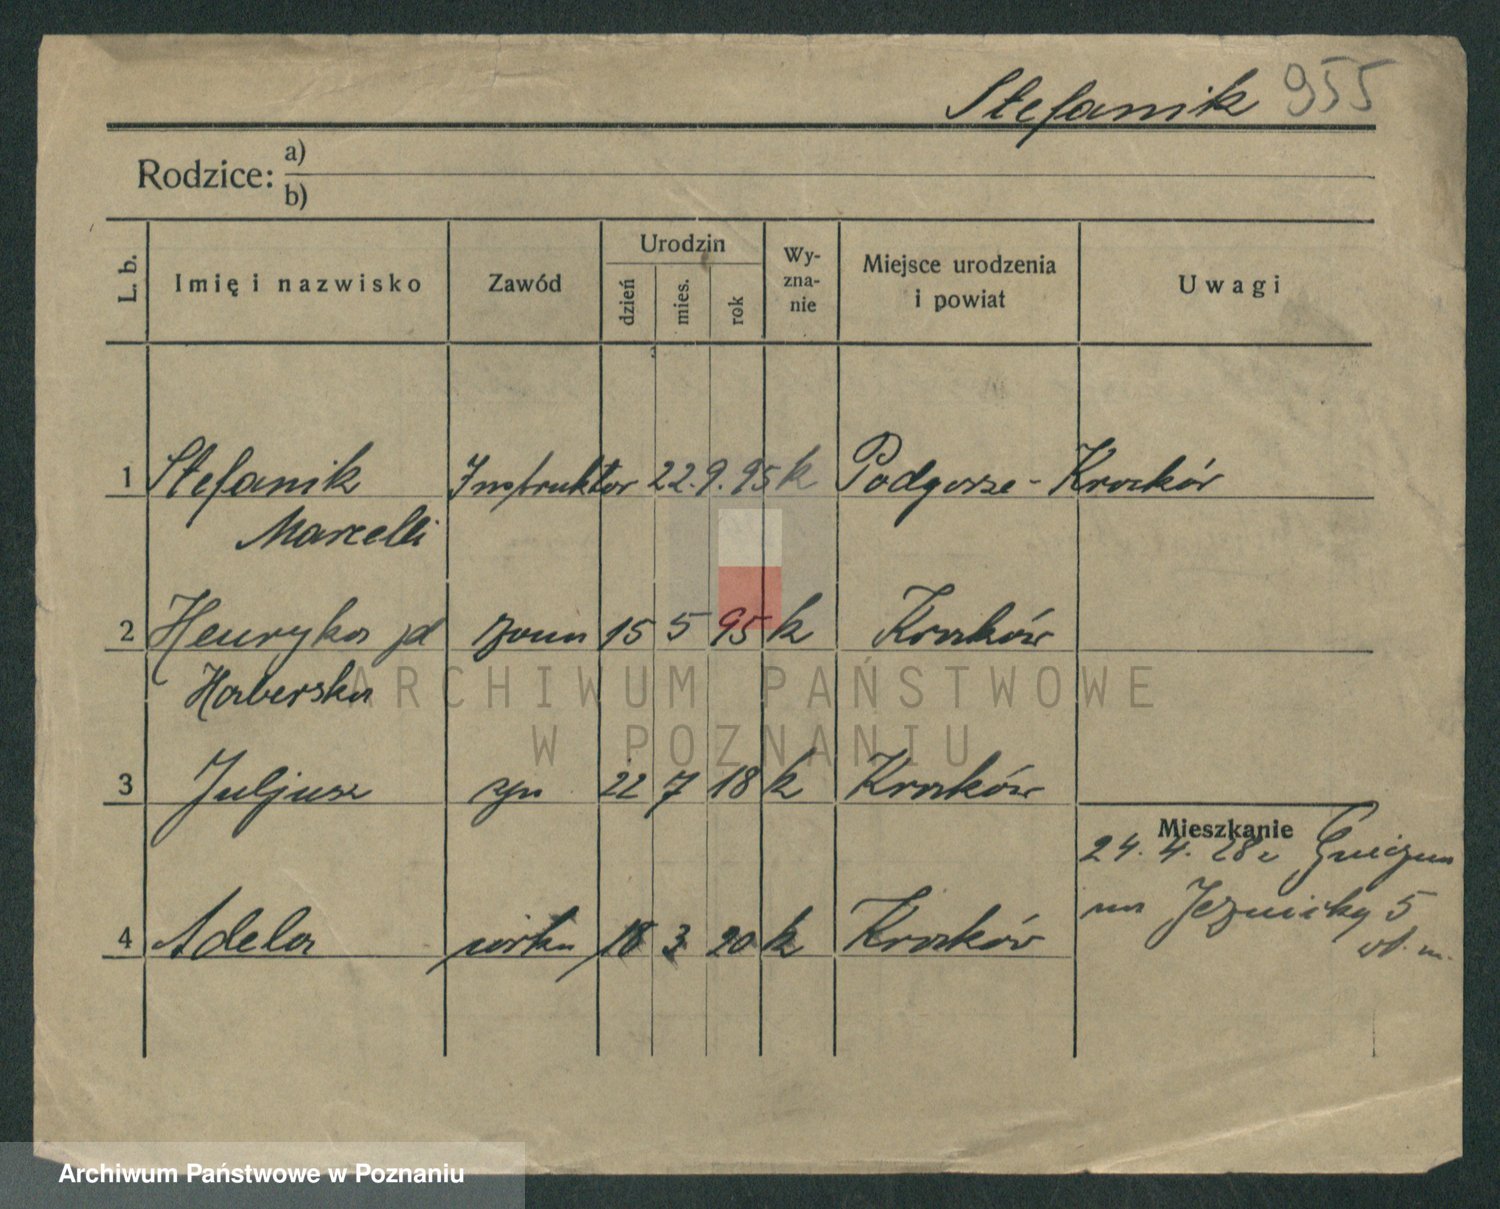 Stefanik 955
Rodzice: a)
b)
L. b. Imię i nazwisko Zawód Urodzin dzień mies. rok Wy-zna-nie Miejsce urodzenia i powiat Uwagi
1 Stefanik Instruktor 22. 9. 95 k Podgorze - Kraków
Marcelli
2 Henryka zona 15 5 95 k Kraków
Haberska
3 Juljusz syn 22 7 18 k Kraków
Mieszkanie
24. 4. 28
4 Adela córka 18 3 20 k Kraków
5
ARCHIWUM PAŃSTWOWE
W POZNANIU
Archiwum Państwowe w Poznaniu